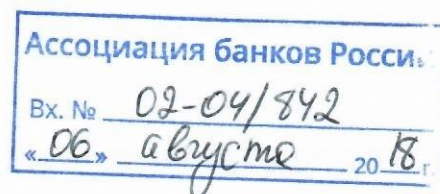 Ассоциация банков Росси
Вх. № 02-04/842
«06» августа 2018 г